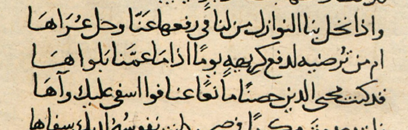 واذا تحل بنا النوازل من لنا في رفعها عنا وحل عراها
ام من لدفع كريهة يوما اذا ما عمنا بلواها
قد كنت محيي الدين حصنا مانعا عنا فوا اسفى عليك وآها